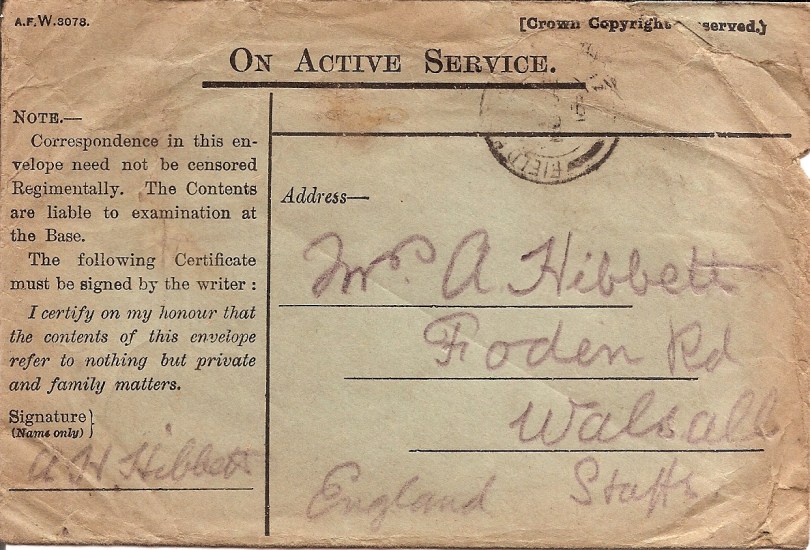 A.F.W.3078.
[Crown Copyright served.]
ON ACTIVE SERVICE.
FIELD
NOTE.—
Correspondence in this en-
velope need not be censored
Regimentally. The Contents
are liable to examination at
the Base.
The following Certificate
must be signed by the writer :
I certify on my honour that
the contents of this envelope
refer to nothing but private
and family matters.
Signature}
(Name only)
A H Hibbett
Address—
Mrs. A Hibbett
Foden Rd
Walsall
Staffs
England